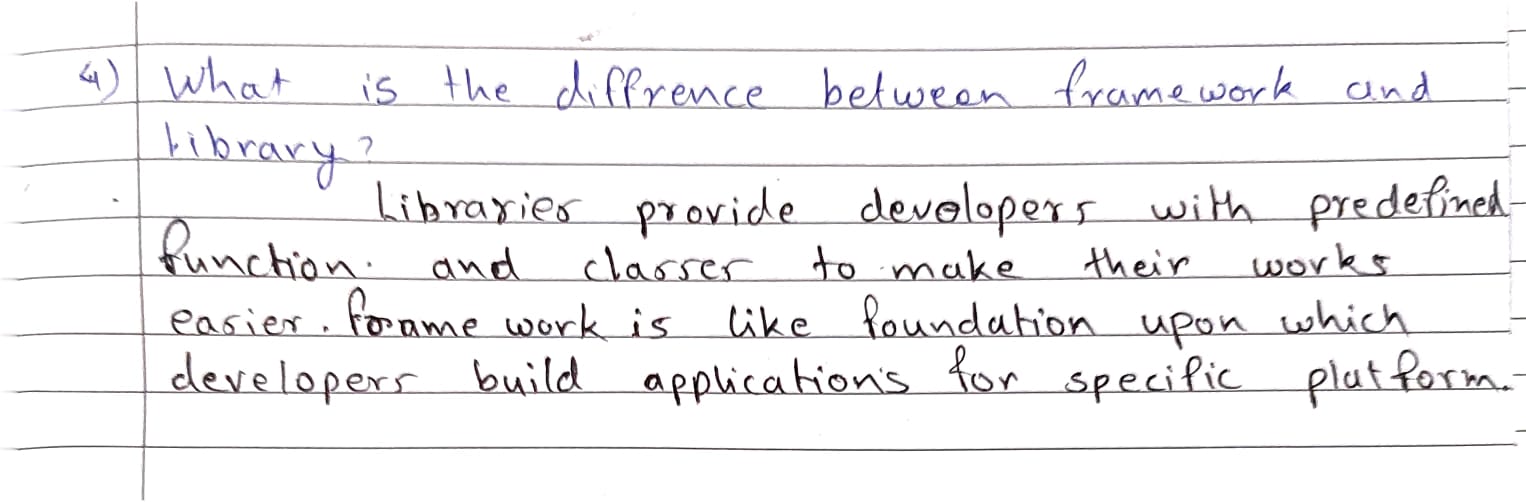 4) What is the diffrence between framework and
library?
Libraries provide developers with predefined
function. and classes to make their works
easier. forame work is like foundation upon which
developers build applications for specific platform.